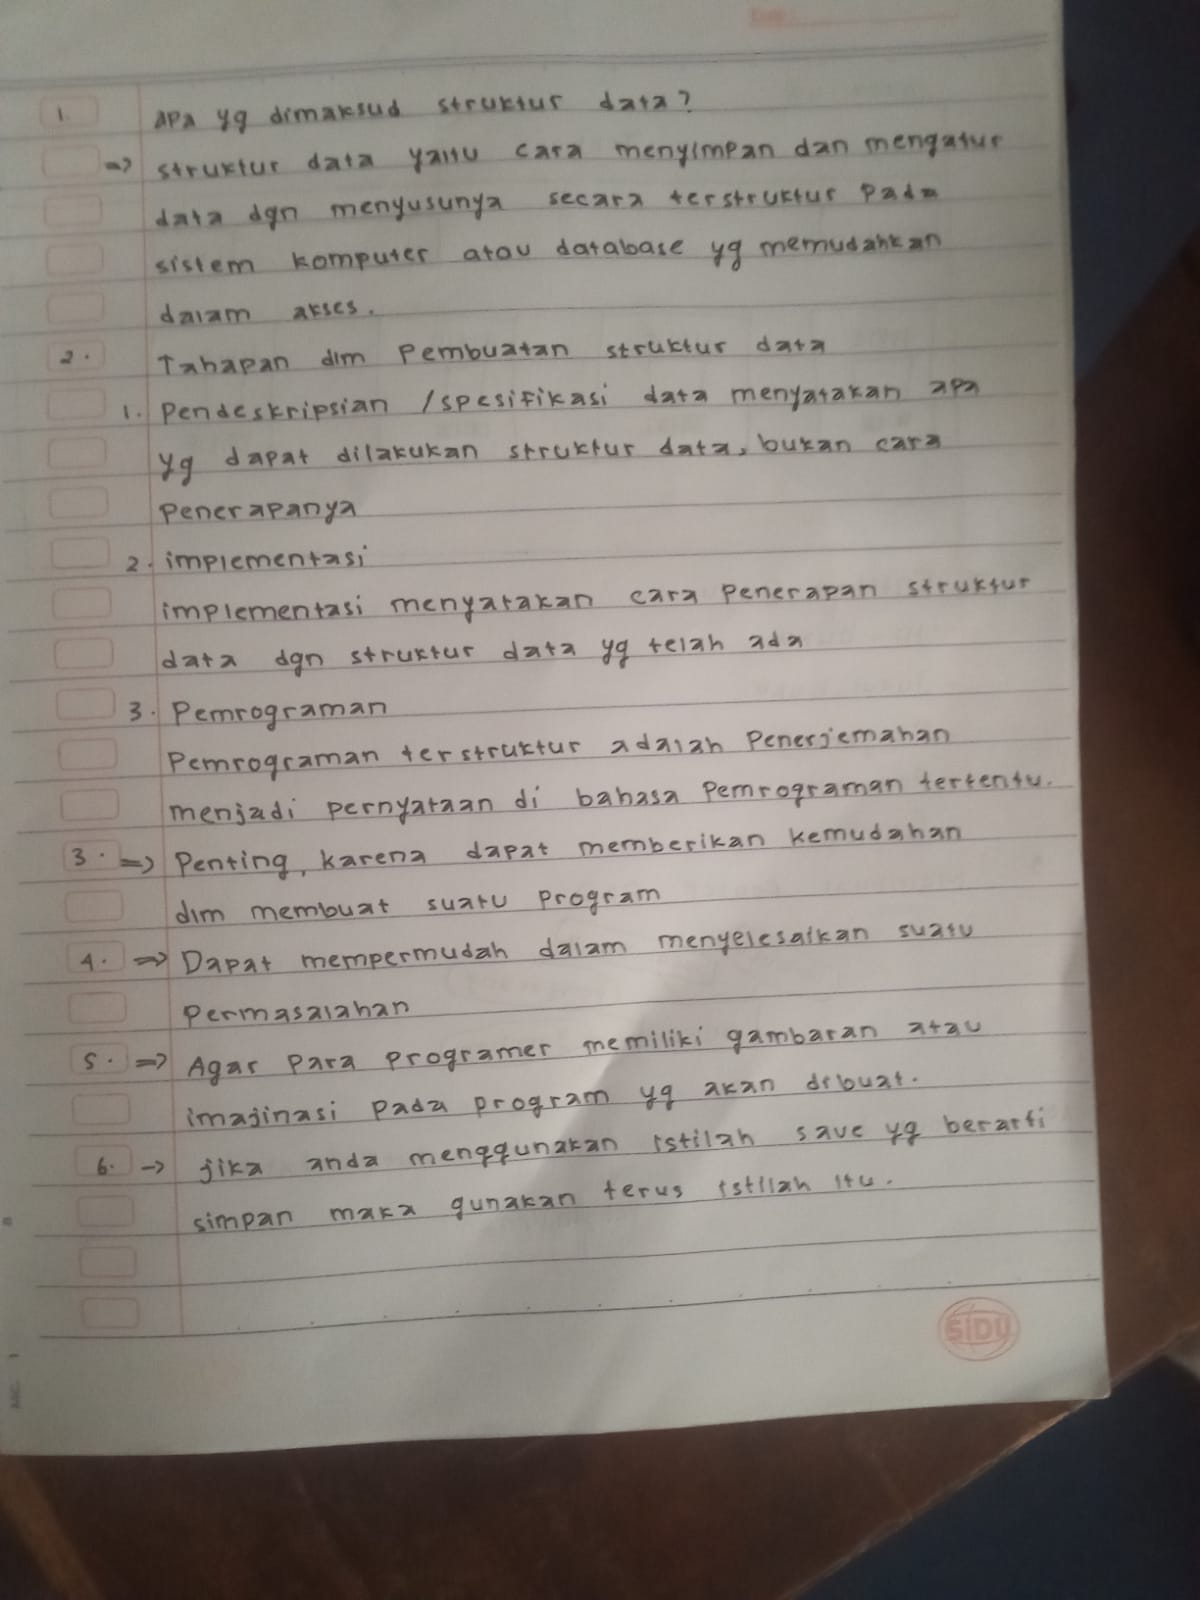 1. apa yg dimaksud struktur data?
=> struktur data yaitu cara menyimpan dan mengatur
data dgn menyusunya secara terstruktur pada
sistem komputer atau database yg memudahkan
dalam akses.
2. Tahapan dlm Pembuatan struktur data
1. Pendeskripsian /spesifikasi data menyatakan apa
yg dapat dilakukan struktur data, bukan cara
Penerapanya
2. implementasi
implementasi menyatakan cara Penerapan struktur
data dgn struktur data yg telah ada
3. Pemrograman
Pemrograman terstruktur adalah Penerjemahan
menjadi pernyataan di bahasa Pemrograman tertentu.
3. => Penting, karena dapat memberikan kemudahan
dlm membuat suatu program
4. => Dapat mempermudah dalam menyelesaikan suatu
Permasalahan
5. => Agar Para programer memiliki gambaran atau
imajinasi pada program yg akan dibuat.
6. -> jika anda menggunakan istilah save yg berarti
simpan maka gunakan terus istilah itu.
SIDU